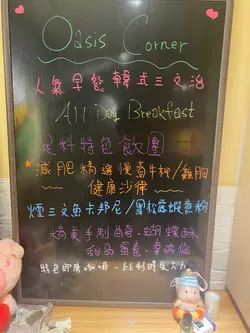 Oasis Corner
人氣早餐韓式三文治
All Day Breakfast
足料特色飯團
減肥精選慢煮牛柳/雞胸
健康沙律
煙三文魚卡邦尼/黑松露蝦意粉
精美手制曲奇、蝴蝶酥
甜品蛋卷、拿破倫
特色即磨咖啡、比利時朱古力